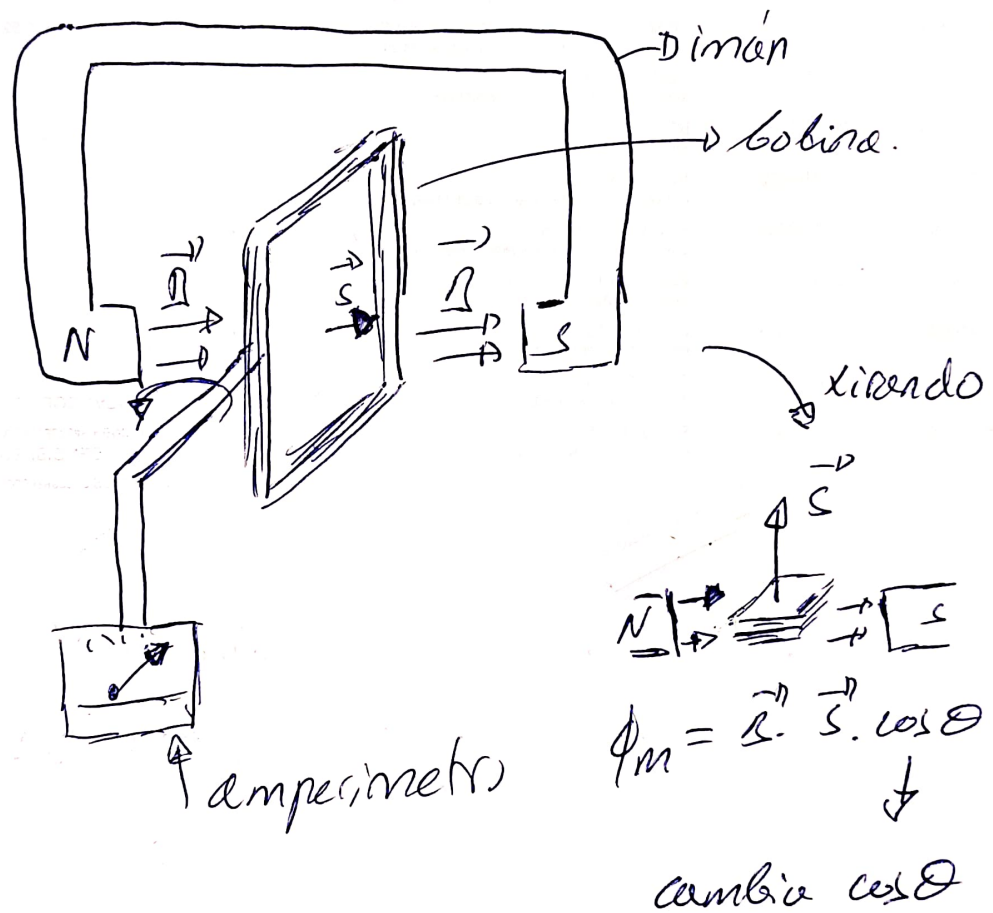 imán
bobina.
B
S
B
N
S
xirando
S
N
S
ϕm = B. S. cosθ
amperímetro
cambia cosθ